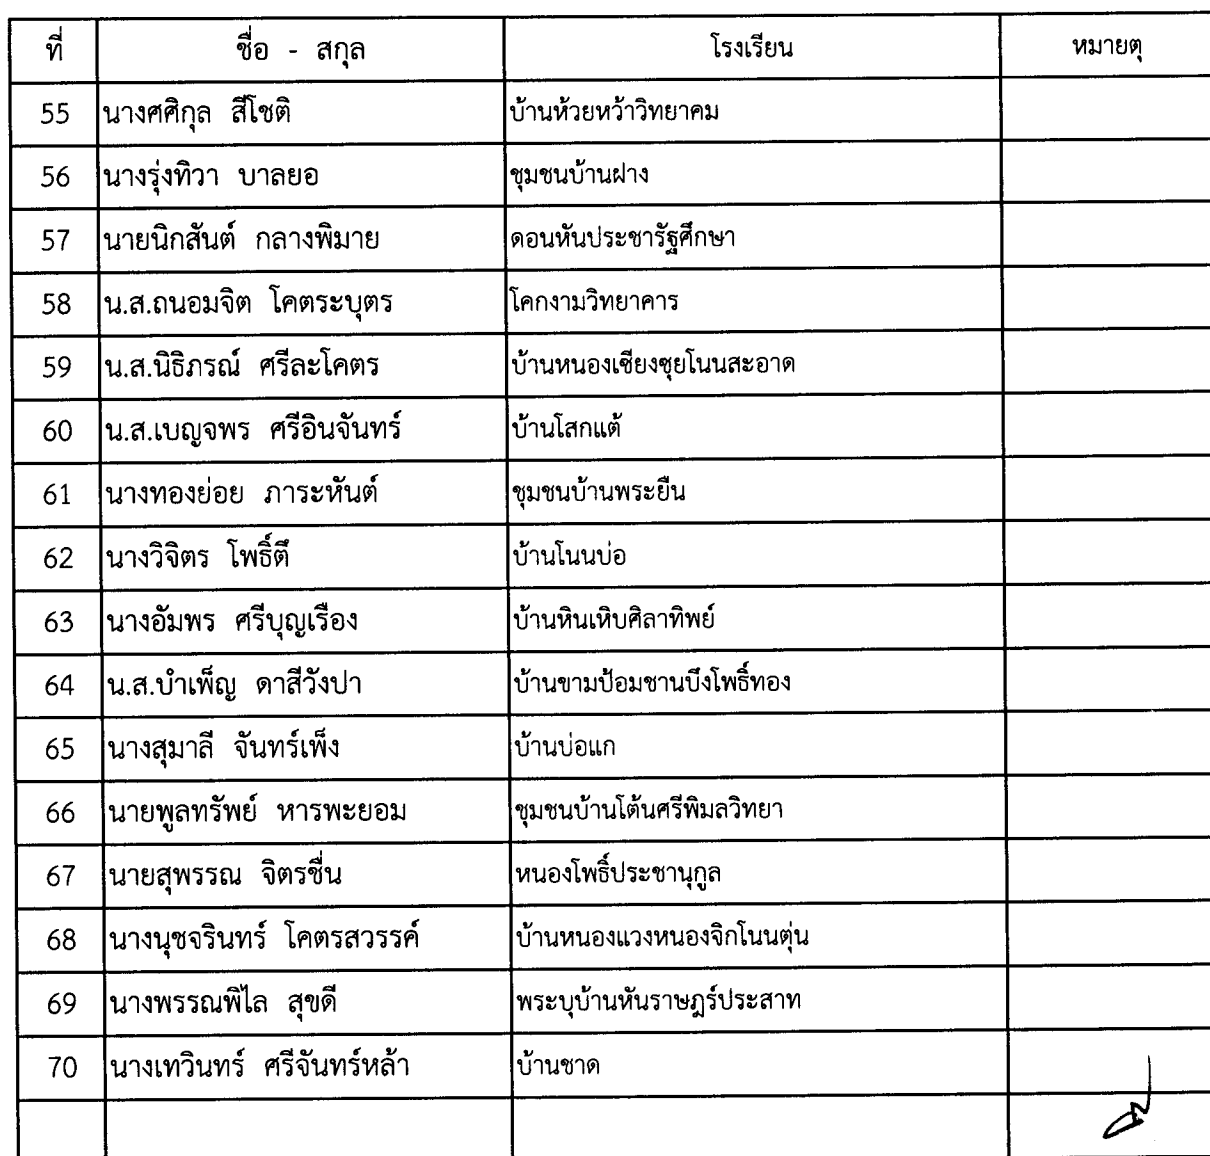 ที่ ชื่อ - สกุล โรงเรียน หมายตุ
55 นางศศิกุล สีโชติ บ้านห้วยหว้าวิทยาคม
56 นางรุ่งทิวา บาลยอ ชุมชนบ้านฝาง
57 นายนิกสันต์ กลางพิมาย ดอนหันประชารัฐศึกษา
58 น.ส.ถนอมจิต โคตระบุตร โคกงามวิทยาคาร
59 น.ส.นิธิภรณ์ ศรีละโคตร บ้านหนองเซียงซุยโนนสะอาด
60 น.ส.เบญจพร ศรีอินจันทร์ บ้านโสกแต้
61 นางทองย่อย ภาระหันต์ ชุมชนบ้านพระยืน
62 นางวิจิตร โพธิ์ตึ บ้านโนนบ่อ
63 นางอัมพร ศรีบุญเรือง บ้านหินเหิบศิลาทิพย์
64 น.ส.บำเพ็ญ ดาสีวังปา บ้านขามป้อมชานบึงโพธิ์ทอง
65 นางสุมาลี จันทร์เพ็ง บ้านบ่อแก
66 นายพูลทรัพย์ หารพะยอม ชุมชนบ้านโต้นศรีพิมลวิทยา
67 นายสุพรรณ จิตรชื่น หนองโพธิ์ประชานุกูล
68 นางนุชจรินทร์ โคตรสวรรค์ บ้านหนองแวงหนองจิกโนนตุ่น
69 นางพรรณพิไล สุขดี พระบุบ้านหันราษฎร์ประสาท
70 นางเทวินทร์ ศรีจันทร์หล้า บ้านชาด